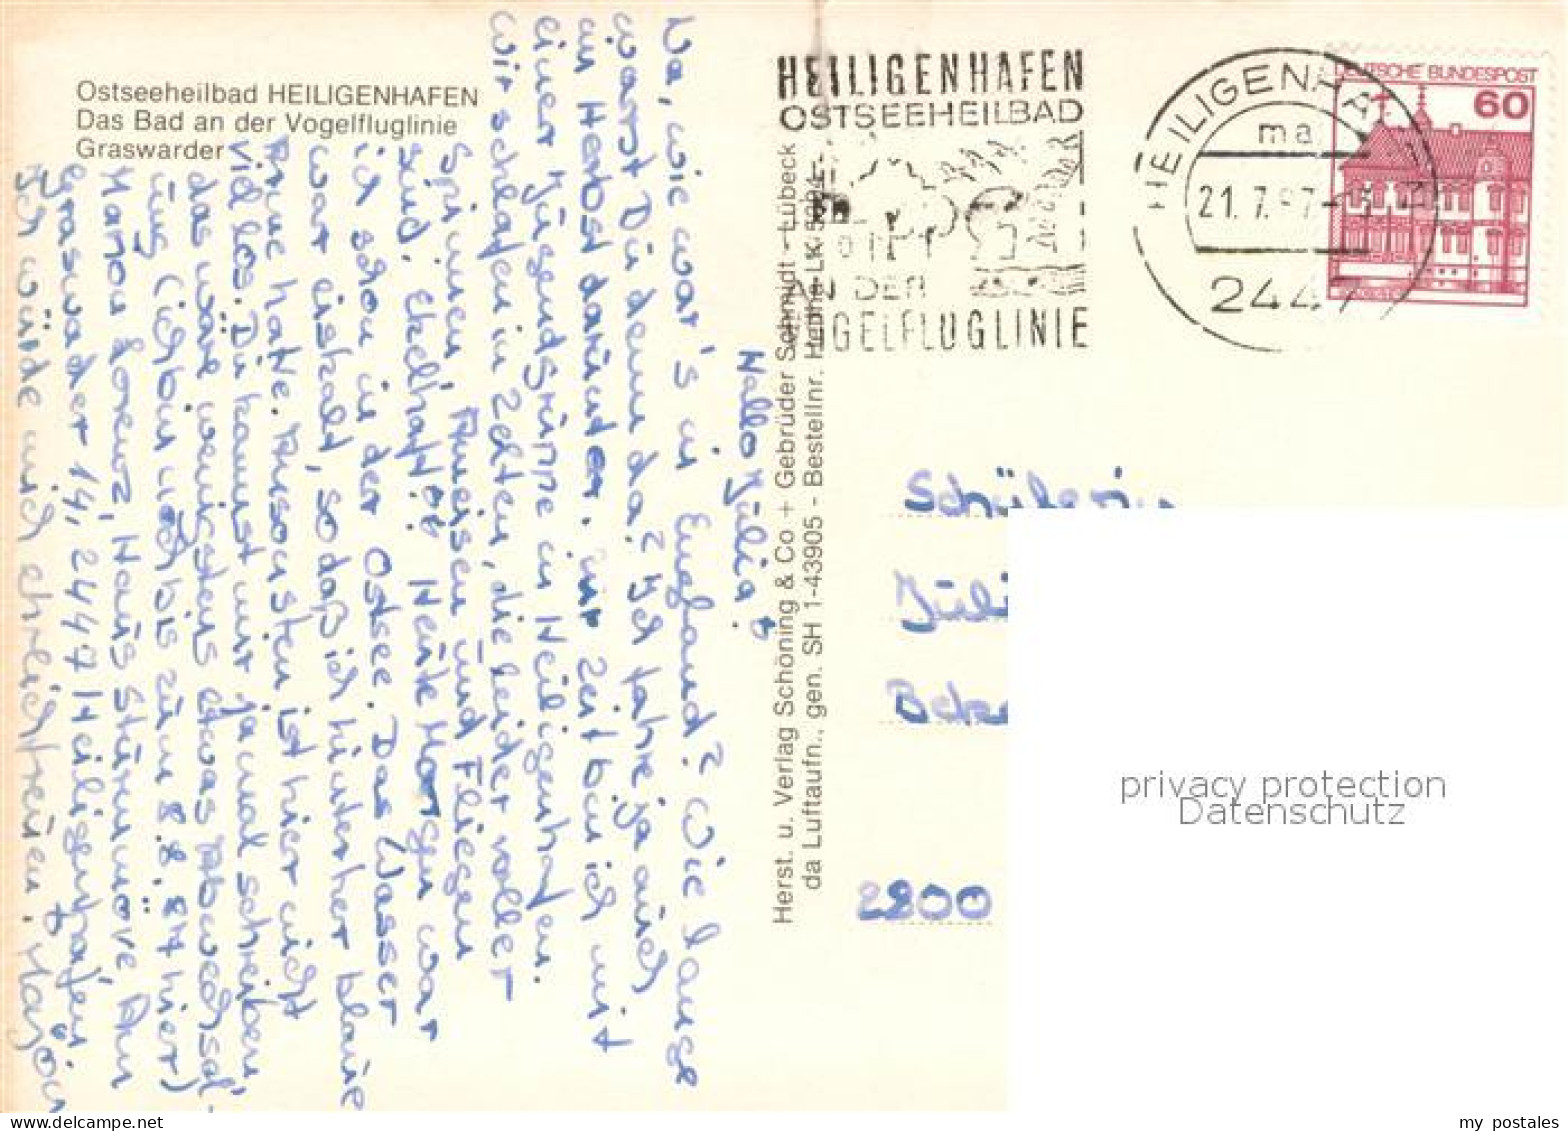 Ostseeheilbad HEILIGENHAFEN
Das Bad an der Vogelfluglinie
Graswarder
Hallo Julia!
Na, wie war's in England? Wie lange
warst Du denn da? Ich fahre ja auch
im Herbst darunter. Zur Zeit bin ich mit
einer Jugendgruppe in Heiligenhafen.
Wir schlafen in Zelten, die leider voller
Spinnen, Ameisen und Fliegen
sind. Ekelhaft! Heute Morgen war
ich schon in der Ostsee. Das Wasser
war eiskalt, sodaß ich hinterher blaue
Arme hatte. Ansonsten ist hier nicht
viel los. Du kannst mir ja mal schreiben
das wär wenigstens etwas Abwechsel-
ung (ich bin noch bis zum 8.8.87 hier)
Marion Lorenz, Haus Sturmmöve Am
Graswader 14, 2447 Heiligenhafen.
Ich würde mich ehrlich freuen.
Herst. u. Verlag Schöning & Co + Gebrüder Schmidt - Lübeck
da Luftaufn., gen. SH 1-43905 - Bestellnr.
HEILIGENHAFEN
OSTSEEHEILBAD
AN DER
VOGELFLUGLINIE
HEILIGENHA
ma
21.7.
2447
DEUTSCHE BUNDESPOST
60
Schülerin
2800
privacy protection
Datenschutz
my postales